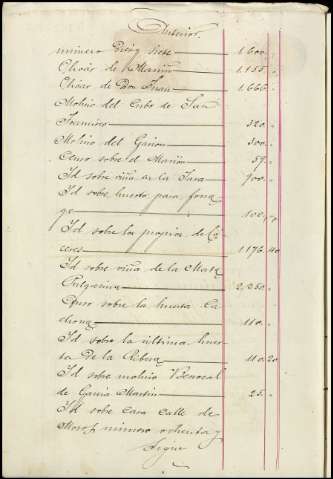 Anterior.
numero Diez y siete 1.600 "
Olivar de Mariño 1.155 "
Olivar de Don Juan 1.666 "
Molino del Cubo de San
Francisco 320 "
Molino del Gañon 300 "
Censo sobre el 59 "
Id sobre viña en la Jara 900 "
Id sobre huerto para forra
ge 102
Id sobre los propios de Cá
ceres 1.176 40
Id sobre viña de la Mata
2,260 "
Censo sobre la huerta La
drona 110 "
Id sobre la ultima huer
ta de la Ribera 110 20
Id sobre molino
de Garcia Martin 25 "
Id sobre casa calle de
Moros, numero ochenta y
Sigue